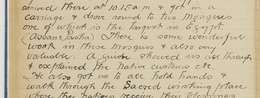 arrived there at 10.150 a m & got in a
carriage & drove round to the Mosques
one of which is the largest in Egypt
( ) There is some wonderful
work in these Mosques & also very
valuable. A guide showed us all through
& explained the Native customs etc
He also got us to all hold hands &
walk through the Sacred wishing place
where the Natives receive their blessings